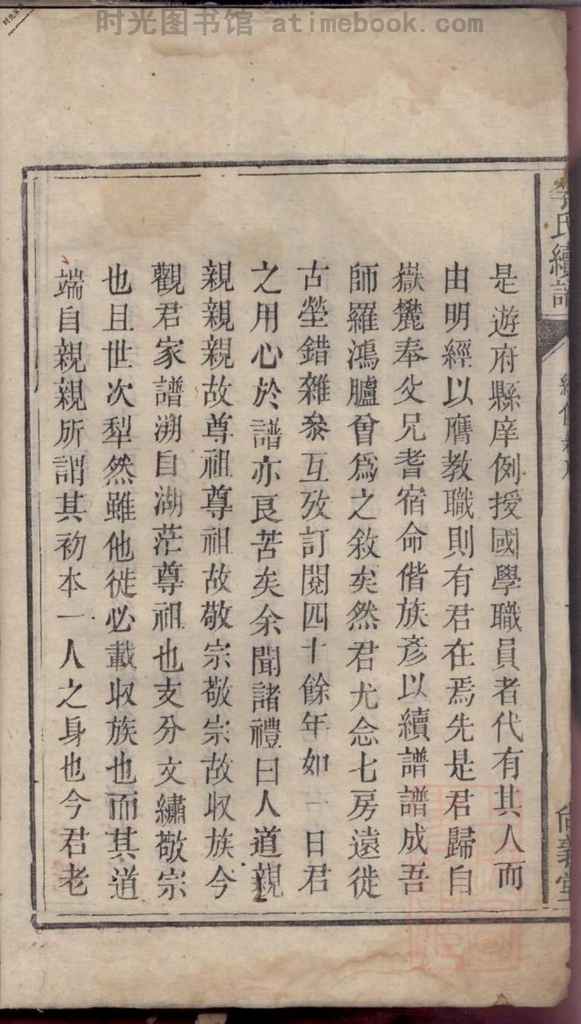 时光图书馆 atimebook.com
氏續譜
是遊府縣庠例授國學職員者代有其人而
由明經以膺教職則有君在焉先是君歸自
嶽麓奉父兄耆宿命偕族彥以續譜譜成吾
師羅鴻臚曾爲之敘矣然君尤念七房遠徙
古塋錯雜叅互攷訂閱四十餘年如一日君
之用心於譜亦良苦矣余聞諸禮曰人道親
親親親故尊祖尊祖故敬宗敬宗故収族今
觀君家譜溯自湖茫尊祖也支分文繡敬宗
也且世次犁然雖他徙必載収族也而其道
端自親親所謂其初本一人之身也今君老